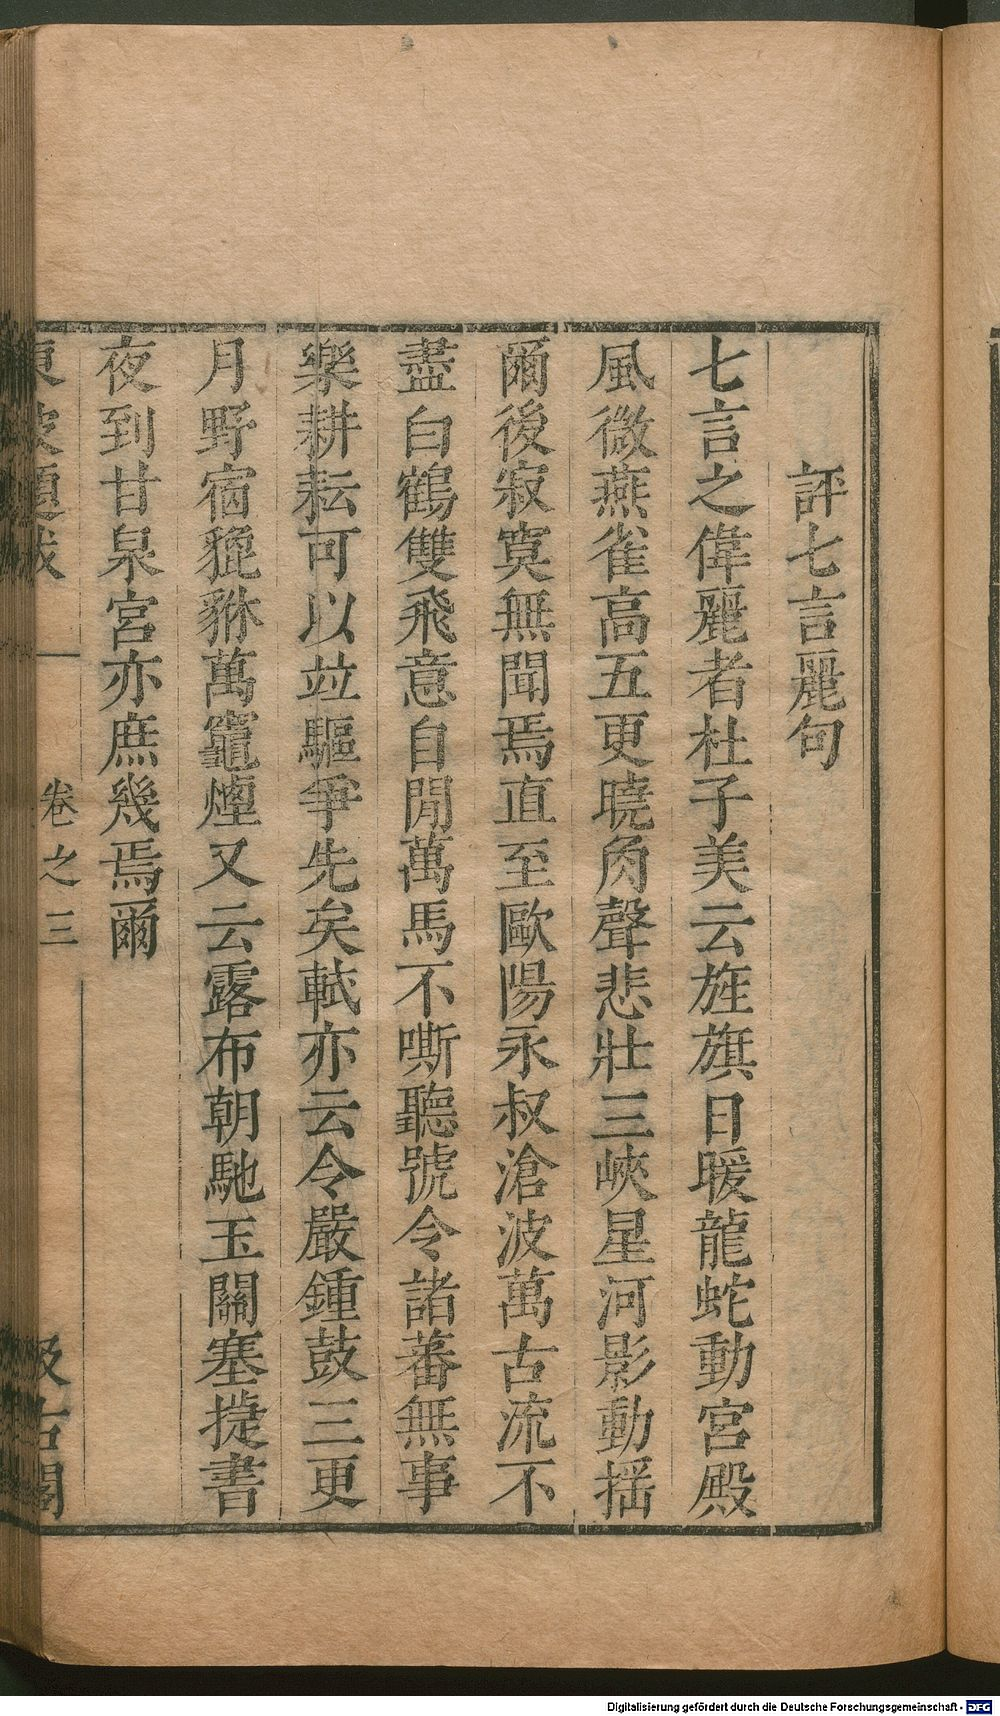 評七言麗句
七言之偉麗者杜子美云旌旗日暖龍蛇動宮殿
風微燕雀高五更曉角聲悲壯三峽星河影動搖
爾後寂寞無聞焉直至歐陽永叔滄波萬古流不
盡白鶴雙飛意自閒萬馬不嘶聽號令諸蕃無事
樂耕耘可以竝驅爭先矣軾亦云令嚴鍾鼓三更
月野宿貔貅萬竈煙又云露布朝馳玉關塞㨗書
夜到甘泉宮亦庶幾焉爾
東坡題跋 卷之三 汲古閣
Digitalisierung gefördert durch die Deutsche Forschungsgemeinschaft - DFG